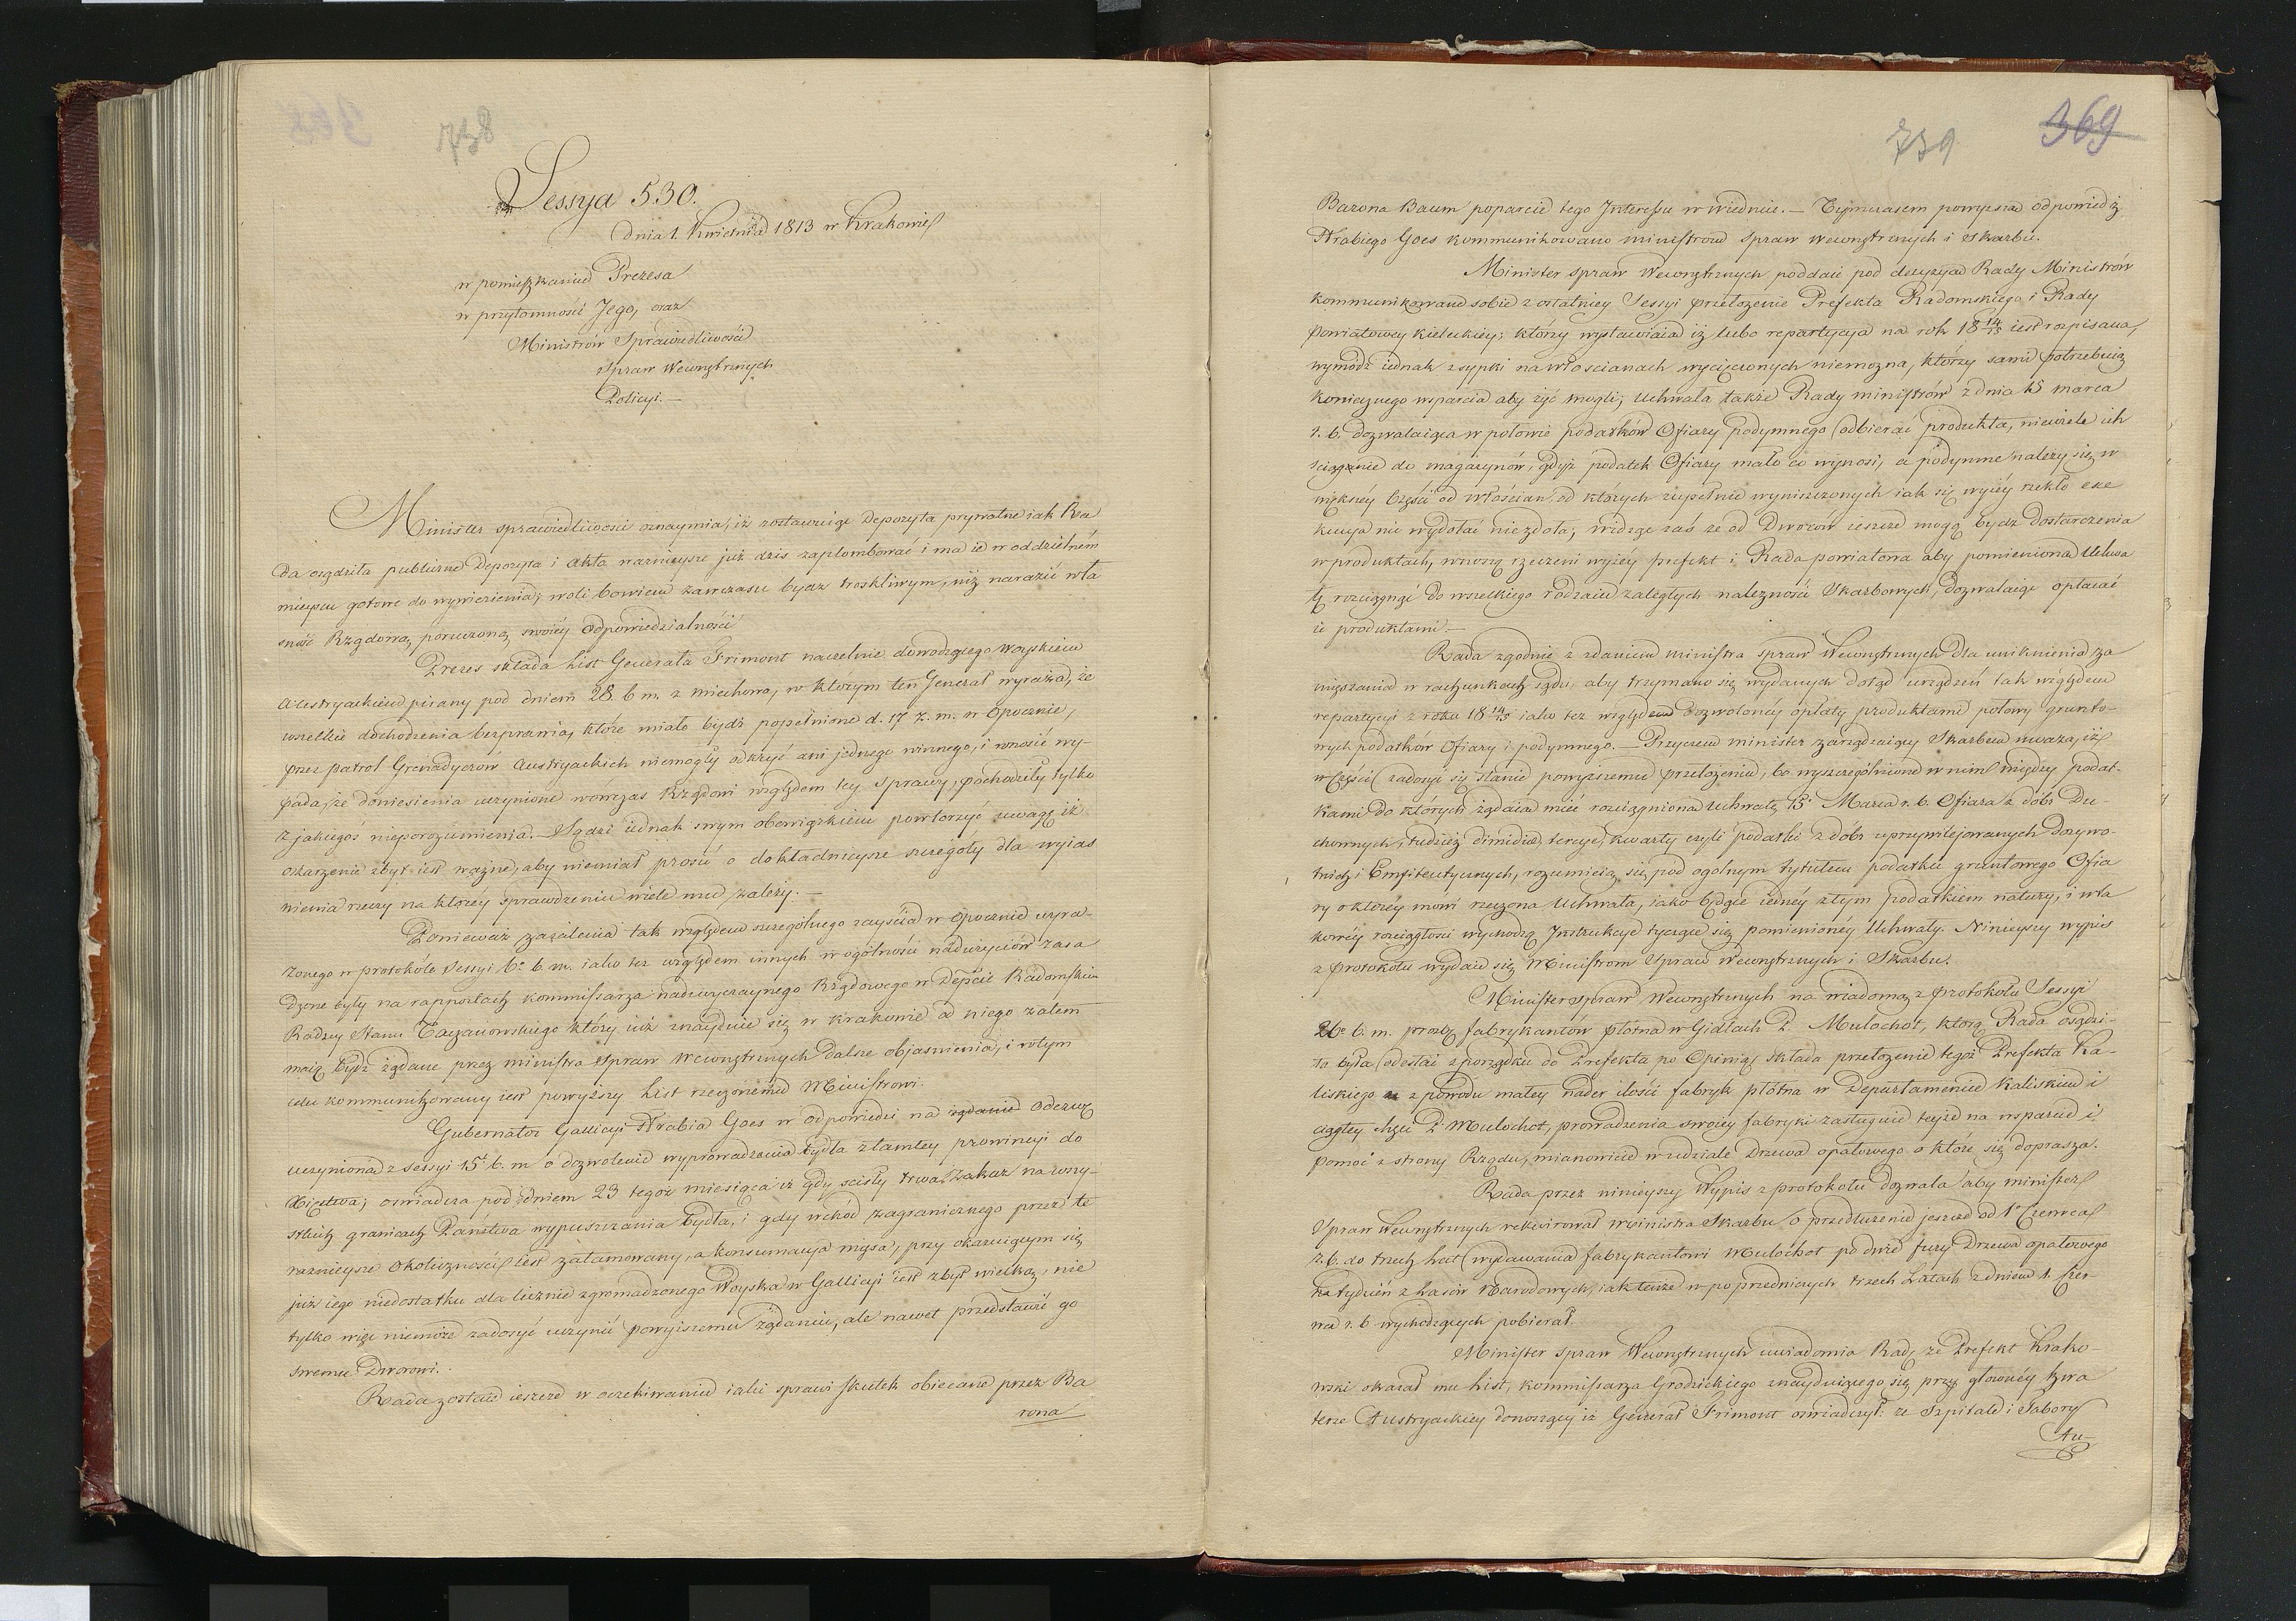 738
Sessya 530.
Dnia 1. Kwietnia 1813 w Krakowie
w pomieszkaniu Prezesa
w przytomności Jego, oraz
Ministrów Sprawiedliwości
Spraw Wewnętrznych
Policyi.—
Minister sprawiedliwości oznaymia, iż zostawuiąc Depozyta prywatne iak Ra
da osądziła publiczne Depozyta i Akta ważnieysze już dziś zaplombować i ma ie w oddzielném
mieyscu gotowe do wywiezienia; woli bowiem zawczasu bydź troskliwym, niż narazić wła
sność Rządową, poruczoną swoiéy odpowiedzialności.
Prezes składa List Generała Frimont naczelnie dowodzącego Woyskiem
Austryackiem pisany pod dniem 28 b. m. z Miechowa, w którym ten Generał wyraża, że
wszelkie dochodzenia bezprawia, które miało bydź popełnione d. 17 z. m. w Opocznie,
przez patrol Grenadyerów Austryackich niemogły odkryć ani jednego winnego, i wnosić wy-
pada, że doniesienia uczynione wówczas Rządowi względem tey sprawy, pochodziły tylko
z jakiegoś nieporozumienia.— Sądzi iednak swym obowiązkiem powtórzyć uwagę iż
oskarżenie zbyt iest ważne, aby niemiał prosić o dokładnieysze szczegóły dla wyias
nienia rzeczy na któréy sprawdzeniu wiele mu zależy.—
Ponieważ zażalenia tak względem szczególnego zayścia w Opocznie wyra-
żonego w protokóle Sessyi b. m. iako też względem innych w ogólności nadużyciów zasa
dzone były na rapportach kommissarza nadzwyczaynego Rządowego w Depcie Radomskim
Radzcy Stanu Taczanowskiego który iuż znayduie się w Krakowie od niego zatem
maią bydź żądane przez ministra Spraw Wewnętrznych dalsze objaśnienia, i w tym
celu kommunikowany iest powyższy List rzeczonemu Ministrowi.
Gubernator Gallicyi Hrabia Goes w odpowiedzi na żądanie Odezwę
uczynioną z Sessyi 15 b. m. o dozwolenie wyprowadzania bydła z tamtey prowincyi do
Xięstwa; oświadcza pod dniem 23 tegoż miesiąca iż gdy ścisły trwa Zakaz na wszy-
stkich granicach Państwa wypuszczania bydła, i gdy wchód zagranicznego przez te
ważnieysze okoliczności iest zatamowany, a konsumacya mięsa, przy okazuiącym się
już iego niedostatku dla licznie zgromadzonego Woyska w Gallicyi iest zbyt wielka, nie
tylko więc niemoże zadosyć uczynić powyższemu żądaniu, ale nawet przedstawić go
swemu Dworowi.
Rada zostaie ieszcze w oczekiwaniu iaki sprawi skutek obiecane przez Ba
rona
739
369
Barona Baum poparcie tego Interessu w Wiedniu.— Tymczasem powyższa odpowiedź
Hrabiego Goes kommunikowano ministrom Spraw Wewnętrznych i Skarbu.
Minister Spraw Wewnętrznych poddaie pod decyzyą Rady Ministrów
kommunikowane sobie z ostatniey Sessyi przełożenie Prefekta Radomskiego i Rady
Powiatowey kieleckiey; który wystawuia iż lubo repartycya na rok 18 14/15 iest rozpisana,
wymódz iednak zsypki na włościanach wycięczonych niemożna, którzy sami potrzebuią
koniecznego wsparcia aby żyć mogli; Uchwała także Rady ministrów z dnia 15 marca
r. b. dozwalaiąca w połowie podatków Ofiary podymnego odbierać produkta, niewiele ich
ściągnie do magazynów, gdyż podatek Ofiary mało co wynosi, a podymne należy się w
większey części od włościan, od których zupełnie wyniszczonych iak się wyżey rzekło exe
kucya nic wydołać niezdoła; widząc zaś że od Dworów ieszcze mogą bydź dostarczenia
w produktach, wnoszą rzeczeni wyżey prefekt i Rada powiatowa aby pomieniona Uchwa
łę rozciągnąć do wszelkiego rodzaiu zaległych należności Skarbowych, dozwalaiąc opłacać
ie produktami.—
Rada zgodnie z zdaniem ministra Spraw Wewnętrznych dla uniknienia za
mięszania w rachunkach sądzi, aby trzymano się wydanych dotąd urządzeń tak względem
repartycyi z roku 18 14/15 iako też względem dozwoloney opłaty produktami połowy grunto-
wych podatków Ofiary i podymnego.— Przyczem minister zarządzaiący Skarbem uważa, iż
w części zadosyć się stanie powyższemu przełożeniu, bo wyszczególnione w nim między podat-
kami do których żądaia mieć rozciągniona Uchwałę 15 Marca r. b. Ofiara z dóbr Du-
chownych, tudzież dimidia, tercye, kwarty czyli podatki z dóbr uprzywilejowanych Dożywo-
tnich i Emfiteutycznych, rozumieią się pod ogólnym tytułem podatku gruntowego Ofia
ry o któréy mówi rzeczona Uchwała, iako będące iednéy z tym podatkiem natury, i w ta
kowéy rozciągłości wychodzą Instrukcye tyczące się pomienionéy Uchwały. Ninieyszy wypis
z protokołu wydaie się Ministrom Spraw Wewnętrznych i Skarbu.
Minister spraw Wewnętrznych na wiadomą z protokołu Sessyi
b. m. prozbę fabrykantów płótna w Gidlach P. Mulochot, którą Rada osądzi-
ła była odesłać z porządku do Prefekta po Opinią, składa przełożenie tegoż Prefekta Ka-
liskiego z powodu małey nader ilości fabryk płótna w Departamencie Kaliskim i
ciągłey chęci P. Mulochot, prowadzenia swoiey fabryki zasługuie tejże na wsparcie i
pomoc z strony Rządu, mianowicie w udziale Drzewa opałowego o które się doprasza.
Rada przez ninieyszy Wypis z protokołu dozwala aby minister
Spraw Wewnętrznych rekwirował ministra Skarbu o przedłużenie jeszcze od 1 Czerwca
r. b. do trzech lat wydawania fabrykantowi Mulochot po dwie fury Drzewa opałowego
na tydzień z Lasów Narodowych, iak ie w poprzedniczych trzech Latach z dniem 1. Czer
wca r. b. wychodzących pobierał.
Minister Spraw Wewnętrznych uwiadomia Radę że Prefekt Krako-
wski okazał mu List, kommissarza Grodzickiego znayduiącego się przy głównéy kwa
terze Austryackiey donoszący iż Generał Frimont oświadczył: że Szpitale i Tabory
Au-